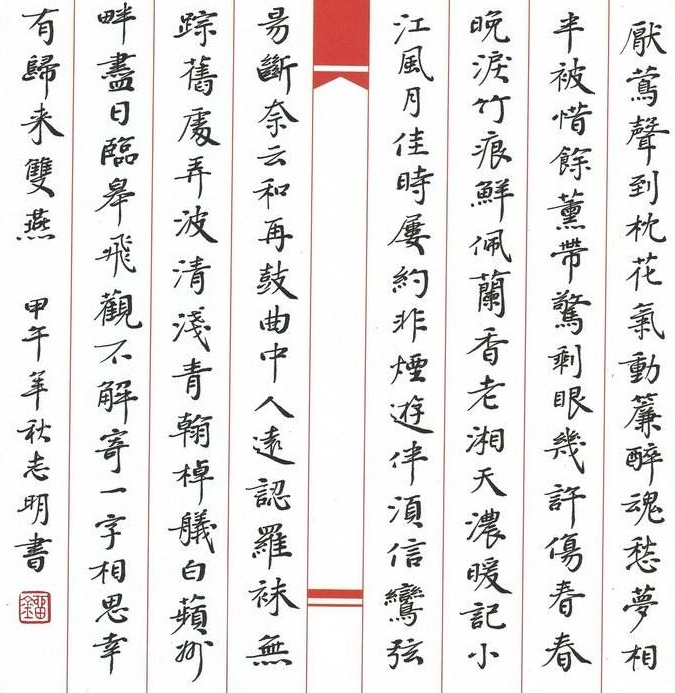 厭鶯聲到枕花氣動簾醉魂愁夢相
半被惜餘薰帶驚剩眼幾許傷春春
晚淚竹痕鮮佩蘭香老湘天濃暖記小
江風月佳時屢約非煙遊伴湏信鸞弦
易斷奈云和再鼓曲中人遠認羅袜無
踪舊處弄波清淺青翰棹艤白蘋州
畔盡日臨皋飛觀不解寄一字相思幸
有歸来雙燕 甲午年秋志明書